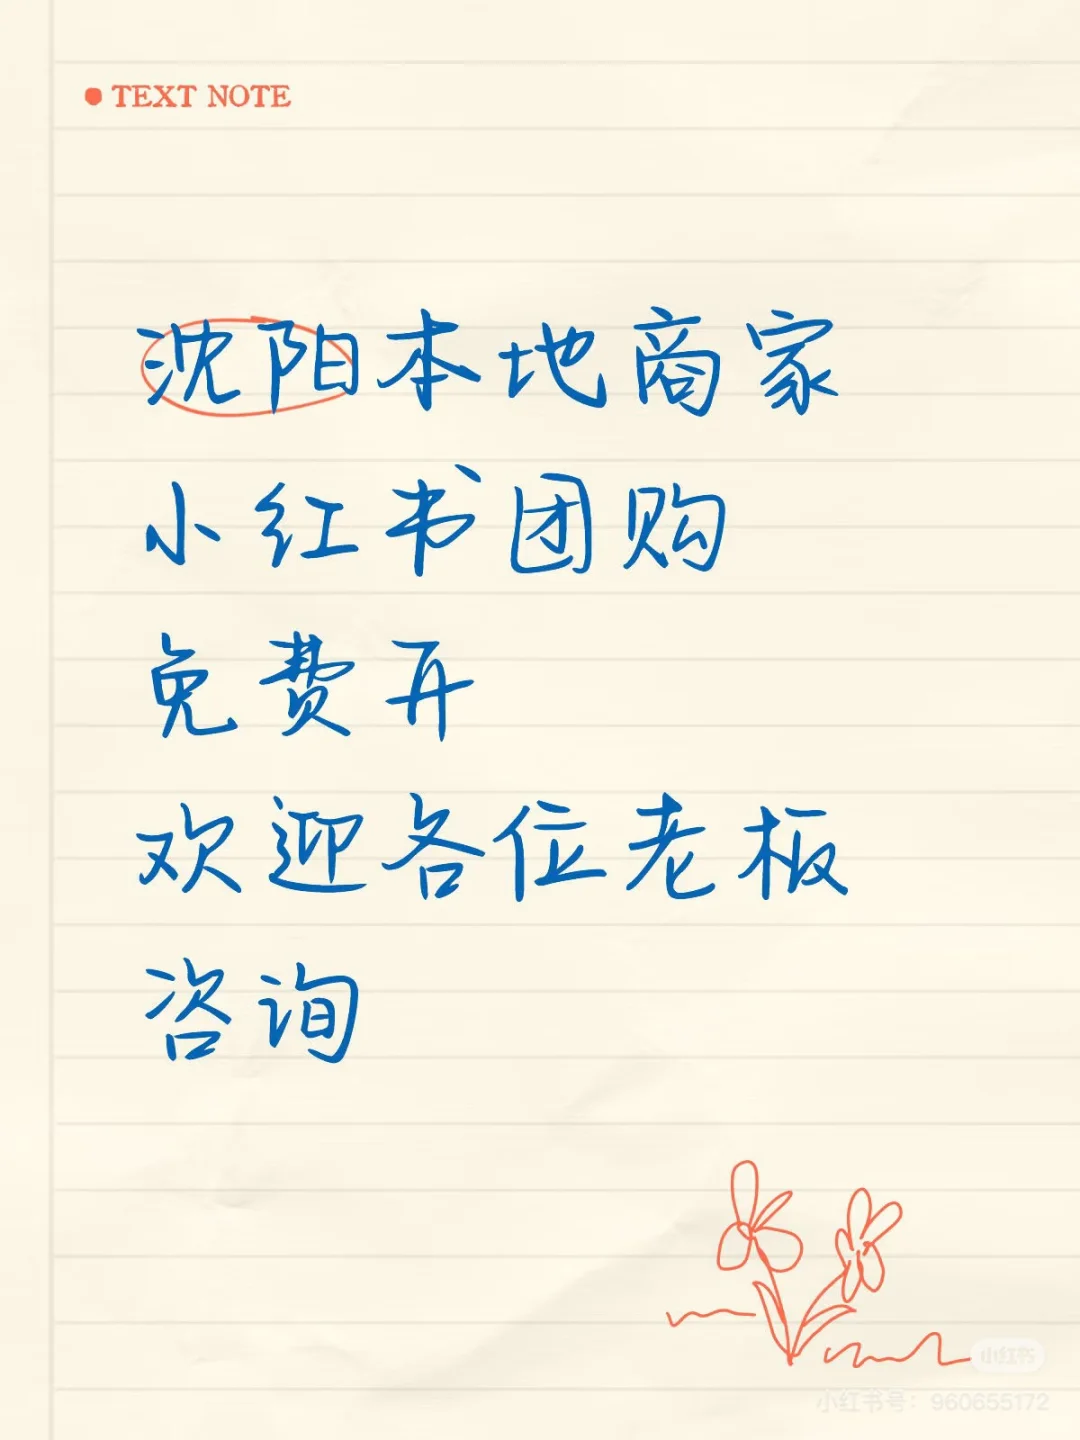 TEXT NOTE
沈阳本地商家
小红书团购
免费开
欢迎各位老板
咨询
小红书
小红书号: 960655172